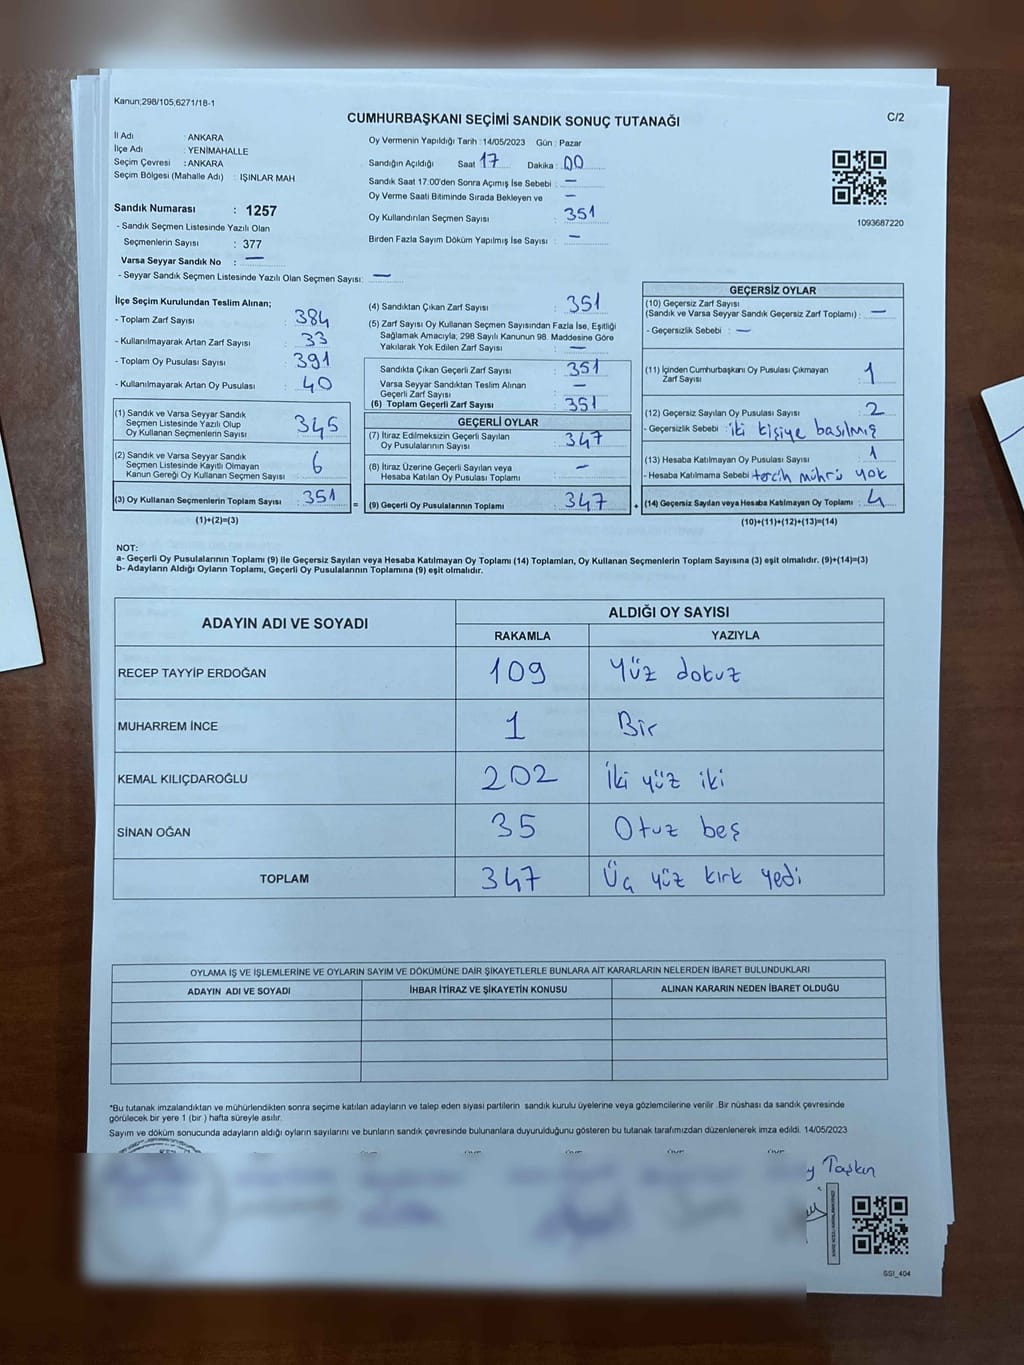 Kanun;298/105,6271/18-1
CUMHURBAŞKANI SEÇİMİ SANDIK SONUÇ TUTANAĞI
C/2
İl Adı : ANKARA
İlçe Adı : YENİMAHALLE
Seçim Çevresi : ANKARA
Seçim Bölgesi (Mahalle Adı) : IŞINLAR MAH
Sandık Numarası : 1257
- Sandık Seçmen Listesinde Yazılı Olan
Seçmenlerin Sayısı : 377
Varsa Seyyar Sandık No : —
- Seyyar Sandık Seçmen Listesinde Yazılı Olan Seçmen Sayısı: —
Oy Vermenin Yapıldığı Tarih : 14/05/2023 Gün : Pazar
Sandığın Açıldığı Saat 17 Dakika : 00
Sandık Saat 17:00'den Sonra Açımış İse Sebebi : —
Oy Verme Saati Bitiminde Sırada Bekleyen ve —
Oy Kullandırılan Seçmen Sayısı : 351
Birden Fazla Sayım Döküm Yapılmış İse Sayısı : —
1093687220
İlçe Seçim Kurulundan Teslim Alınan;
- Toplam Zarf Sayısı : 384
- Kullanılmayarak Artan Zarf Sayısı : 33
- Toplam Oy Pusulası Sayısı : 391
- Kullanılmayarak Artan Oy Pusulası : 40
(1) Sandık ve Varsa Seyyar Sandık
Seçmen Listesinde Yazılı Olup
Oy Kullanan Seçmenlerin Sayısı : 345
(2) Sandık ve Varsa Seyyar Sandık
Seçmen Listesinde Kayıtlı Olmayan
Kanun Gereği Oy Kullanan Seçmen Sayısı : 6
(3) Oy Kullanan Seçmenlerin Toplam Sayısı : 351
(1)+(2)=(3)
(4) Sandıktan Çıkan Zarf Sayısı : 351
(5) Zarf Sayısı Oy Kullanan Seçmen Sayısından Fazla İse, Eşitliği
Sağlamak Amacıyla; 298 Sayılı Kanunun 98. Maddesine Göre
Yakılarak Yok Edilen Zarf Sayısı : —
Sandıkta Çıkan Geçerli Zarf Sayısı : 351
Varsa Seyyar Sandıktan Teslim Alınan
Geçerli Zarf Sayısı : —
(6) Toplam Geçerli Zarf Sayısı : 351
GEÇERLİ OYLAR
(7) İtiraz Edilmeksizin Geçerli Sayılan
Oy Pusulalarının Sayısı : 347
(8) İtiraz Üzerine Geçerli Sayılan veya
Hesaba Katılan Oy Pusulası Toplamı : —
= (9) Geçerli Oy Pusulalarının Toplamı : 347 +
GEÇERSİZ OYLAR
(10) Geçersiz Zarf Sayısı
(Sandık ve Varsa Seyyar Sandık Geçersiz Zarf Toplamı) : —
- Geçersizlik Sebebi : —
(11) İçinden Cumhurbaşkanı Oy Pusulası Çıkmayan
Zarf Sayısı : 1
(12) Geçersiz Sayılan Oy Pusulası Sayısı : 2
- Geçersizlik Sebebi : iki kişiye basılmış
(13) Hesaba Katılmayan Oy Pusulası Sayısı : 1
- Hesaba Katılmama Sebebi : tercih mührü yok
(14) Geçersiz Sayılan veya Hesaba Katılmayan Oy Toplamı : 4
(10)+(11)+(12)+(13)=(14)
NOT:
a- Geçerli Oy Pusulalarının Toplamı (9) ile Geçersiz Sayılan veya Hesaba Katılmayan Oy Toplamı (14) Toplamları, Oy Kullanan Seçmenlerin Toplam Sayısına (3) eşit olmalıdır. (9)+(14)=(3)
b- Adayların Aldığı Oyların Toplamı, Geçerli Oy Pusulalarının Toplamına (9) eşit olmalıdır.
ADAYIN ADI VE SOYADI
ALDIĞI OY SAYISI
RAKAMLA YAZIYLA
RECEP TAYYİP ERDOĞAN 109 Yüz dokuz
MUHARREM İNCE 1 Bir
KEMAL KILIÇDAROĞLU 202 İki yüz iki
SİNAN OĞAN 35 Otuz beş
TOPLAM 347 Üç yüz kırk yedi
OYLAMA İŞ VE İŞLEMLERİNE VE OYLARIN SAYIM VE DÖKÜMÜNE DAİR ŞİKAYETLERLE BUNLARA AİT KARARLARIN NELERDEN İBARET BULUNDUKLARI
ADAYIN ADI VE SOYADI İHBAR İTİRAZ VE ŞİKAYETİN KONUSU ALINAN KARARIN NEDEN İBARET OLDUĞU
*Bu tutanak imzalandıktan ve mühürlendikten sonra seçime katılan adayların ve talep eden siyasi partilerin sandık kurulu üyelerine veya gözlemcilerine verilir .Bir nüshası da sandık çevresinde
görülecek bir yere 1 (bir ) hafta süreyle asılır.
Sayım ve döküm sonucunda adayların aldığı oyların sayılarını ve bunların sandık çevresinde bulunanlara duyurulduğunu gösteren bu tutanak tarafımızdan düzenlenerek imza edildi. 14/05/2023
y Taşkın
SSI_404